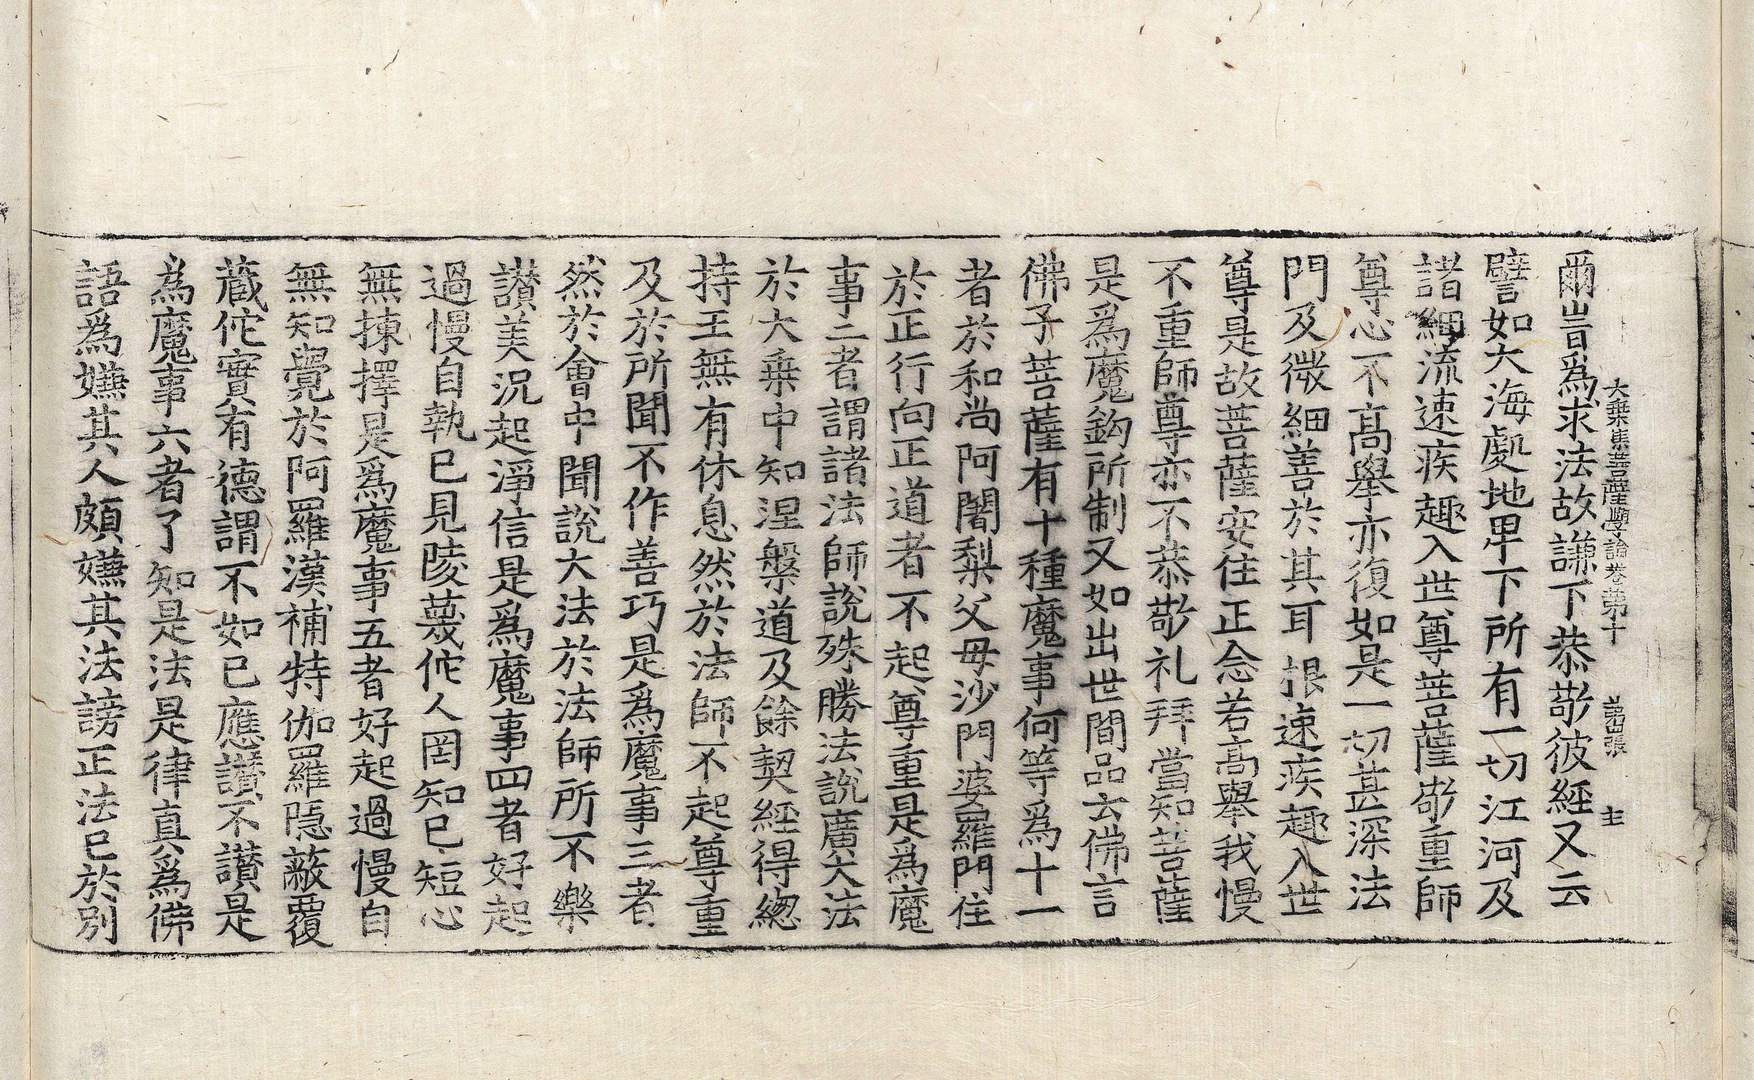 大乗集菩薩學論卷第十 第四張 主
爾時爲求法故謙下恭敬彼經又云
譬如大海處地卑下所有一切江河及
諸細流速疾趣入世尊菩薩敬重師
尊心不高舉亦復如是一切甚深法
門及微細善於其耳根速疾趣入世
尊是故菩薩安住正念若高舉我慢
不重師尊亦不恭敬礼拜當知菩薩
是爲魔鈎所制又如出世間品云佛言
佛子菩薩有十種魔事何等爲十一
者於和尚阿闍梨父母沙門婆羅門住
於正行向正道者不起尊重是爲魔
事二者謂諸法師說殊勝法說廣大法
於大乗中知涅槃道及餘契經得緫
持王無有休息然於法師不起尊重
及於所聞不作善巧是爲魔事三者
然於會中聞說大法於法師所不樂
讃美況起淨信是爲魔事四者好起
過慢自執己見陵蔑佗人罔知己短心
無揀擇是爲魔事五者好起過慢自
無知覺於阿羅漢補特伽羅隱蔽覆
藏佗實有德謂不如己應讃不讃是
為魔事六者了知是法是律真爲佛
語爲嫌其人頗嫌其法謗正法已於别